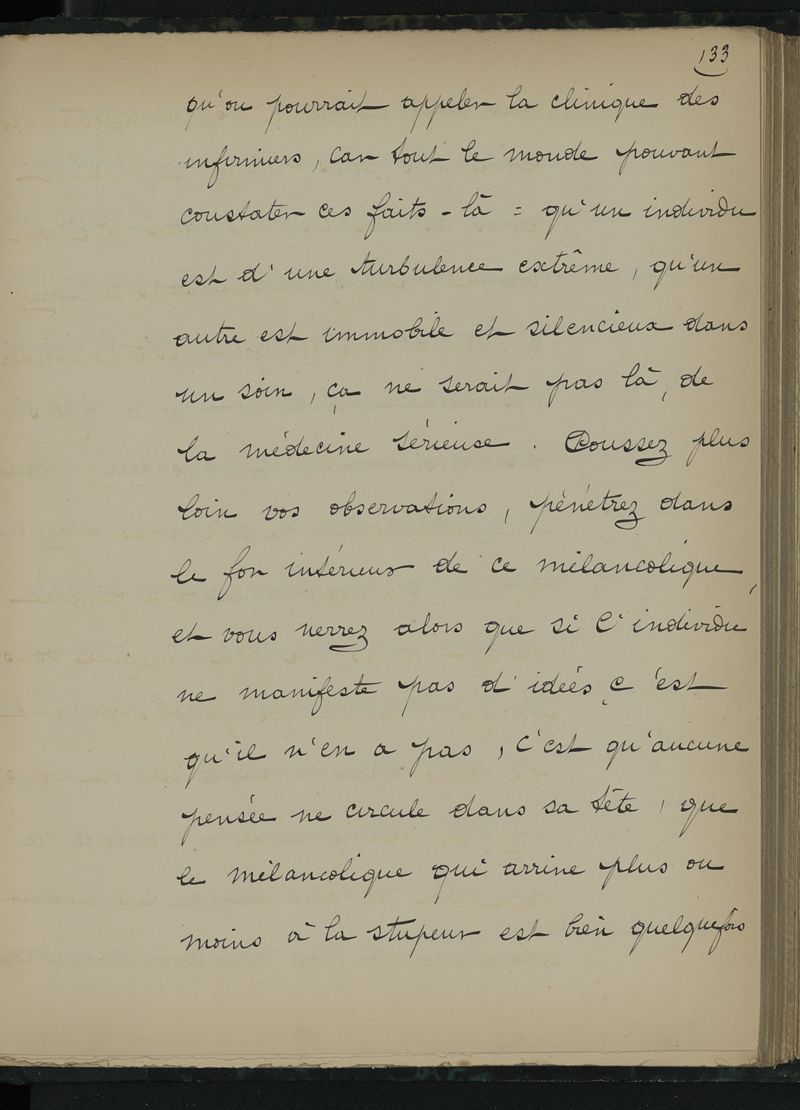 133
qu'on pourrait appeler la clinique des
infirmiers, car tout le monde pouvant
constater ces faits-là = qu'un individu
est d'une turbulence extrême, qu'un
autre est immobile et silencieux dans
un soin, ça ne serait pas là, de
la médecine sérieuse. Poussez plus
loin vos observations, pénétrez dans
le for intérieur de ce mélancolique,
et vous verrez alors que si l'individu
ne manifeste pas d'idées, c'est
qu'il n'en a pas, c'est qu'aucune
pensée ne circule dans sa tête, que
le mélancolique qui arrive plus ou
moins à la stupeur est bien quelquefois